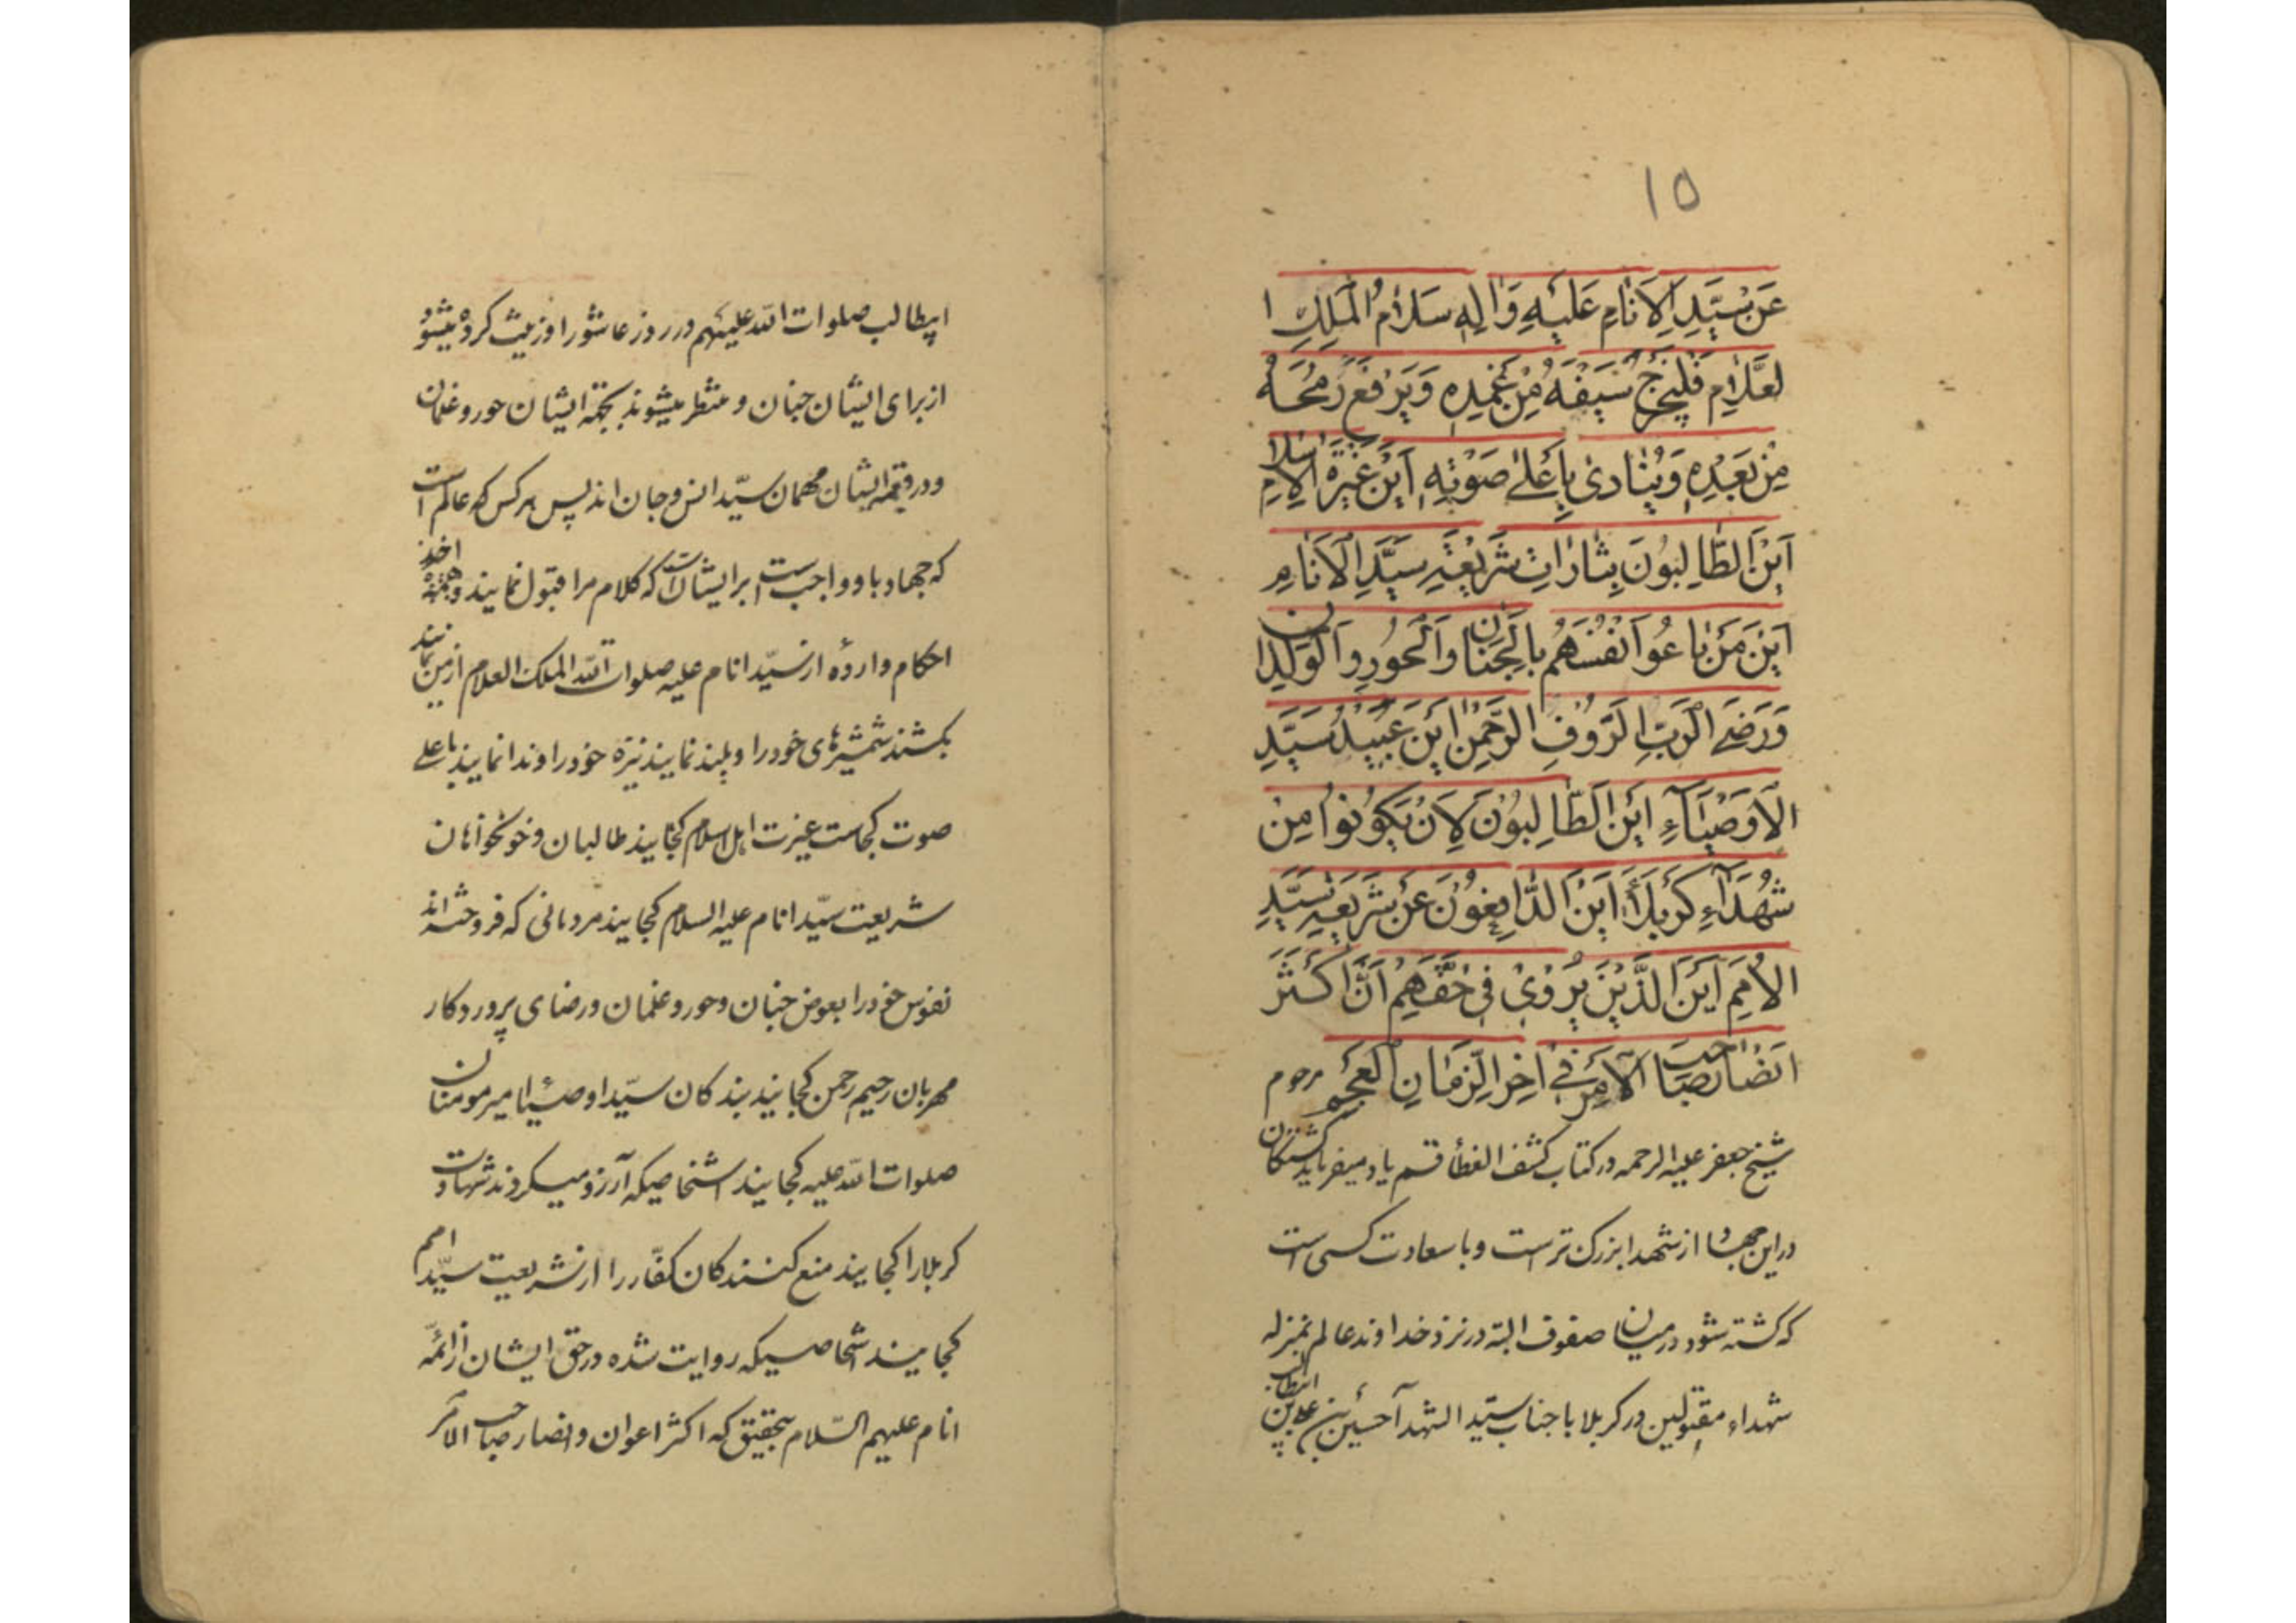 ۱۵
عَن سَیِّدِ الاَنامِ عَلَیهِ وَالِهِ سَلامُ المَلِكِ ا
لعَلّامِ فَلیُخرِج سَیفَهُ مِن غِمدِهِ وَیَرفَع رُمحَهُ
مِن بَعدِهِ وَیُنادی بِاَعلی صَوتِهِ اَینَ غَیرَةُ الاِسلامِ
اَینَ الطّالِبُونَ بِثاراتِ شَریعَةِ سَیِّدِ الاَنامِ
اَینَ مَن باعُوا اَنفُسَهُم بِالجِنانِ وَالحُورِ وَالوِلدانِ
وَرَضَی الرَّبِّ الرَّؤُفِ الرَّحمنِ اَینَ عَبیدُ سَیِّدِ
الاَوصِیَآءِ اَینَ الطّالِبُونَ لِاَن یَکُونُوا مِن
شُهَدَآءِ کَربَلَاءَ اَینَ الدّافِعُونَ عَن شَریعَةِ سَیِّدِ
الاُمَمِ اَینَ الَّذینَ رُوِیَ فی حَقِّهِم اَنَّ اَکثَرَ
اَنصارِ صاحِبِ الاَمرِ فی اخِرِ الزَّمانِ العَجَم مرحوم
شیخ جعفر علیه الرحمه در کتاب کشف الغطأ قسم یاد میفرماید کشتکان
در این جهاد از شهدا بزرک تر است و با سعادت کسی است
که کشته شود در میان صفوف البته در نزد خداوند عالم بمنزله
شهداء مقتولین در کربلا با جناب سیّد الشهدآ حسین بن علی بن
ابیطالب صلوات الله علیهم در روز عاشورا و زینت کرده میشود
از برای ایشان جنان و منتظر میشوند بجهة ایشان حور و غلمان
و در قیمة ایشان مهمان سیّد انس و جان اند پس هر کس که عالم است
که جهاد با او واجب است بر ایشان است که کلام مرا قبول نمایند و همه اخذ
احکام وارده از سیّد انام علیه صلوات الله الملک العلام از من نمایند
بکشند شمشیرهای خود را و بلند نمایند نیزه خود را و ندا نمایند باعلی
صوت کجاست غیرت اهل اسلام کجایند طالبان و خونخواهان
شریعت سیّد انام علیه السلام کجایند مردمانی که فروخته اند
نفوس خود را بعوض جنان و حور و غلمان و رضای پروردکار
مهربان رحیم رحمن کجایند بندکان سیّد اوصیا امیر مومنان
صلوات الله علیه کجایند اشخاصیکه آرزو میکردند شهادت
کربلا را کجایند منع کنندکان کفّار را از شریعت سیّد امم
کجایند اشخاصیکه روایت شده در حق ایشان از ائمّه
انام علیهم السّلام بتحقیق که اکثر اعوان و انصار صاحب الامر